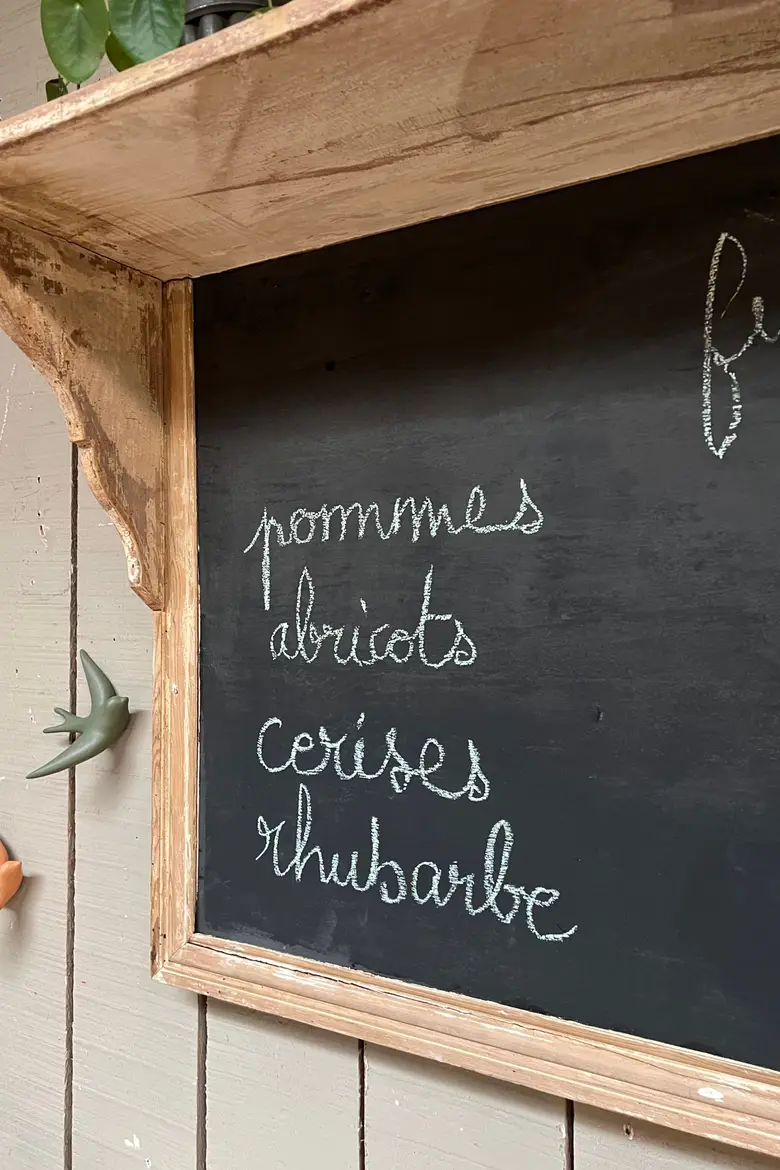 pommes
abricots
cerises
rhubarbe